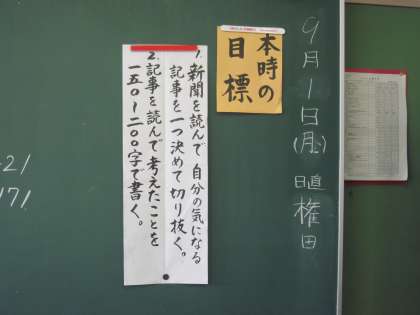 9月1日(月)
日直 権田
本時の
目標
1. 新聞を読んで自分の気になる
記事を一つ決めて切り抜く。
2. 記事を読んで考えたことを
一五〇〜二〇〇字で書く。
21
171